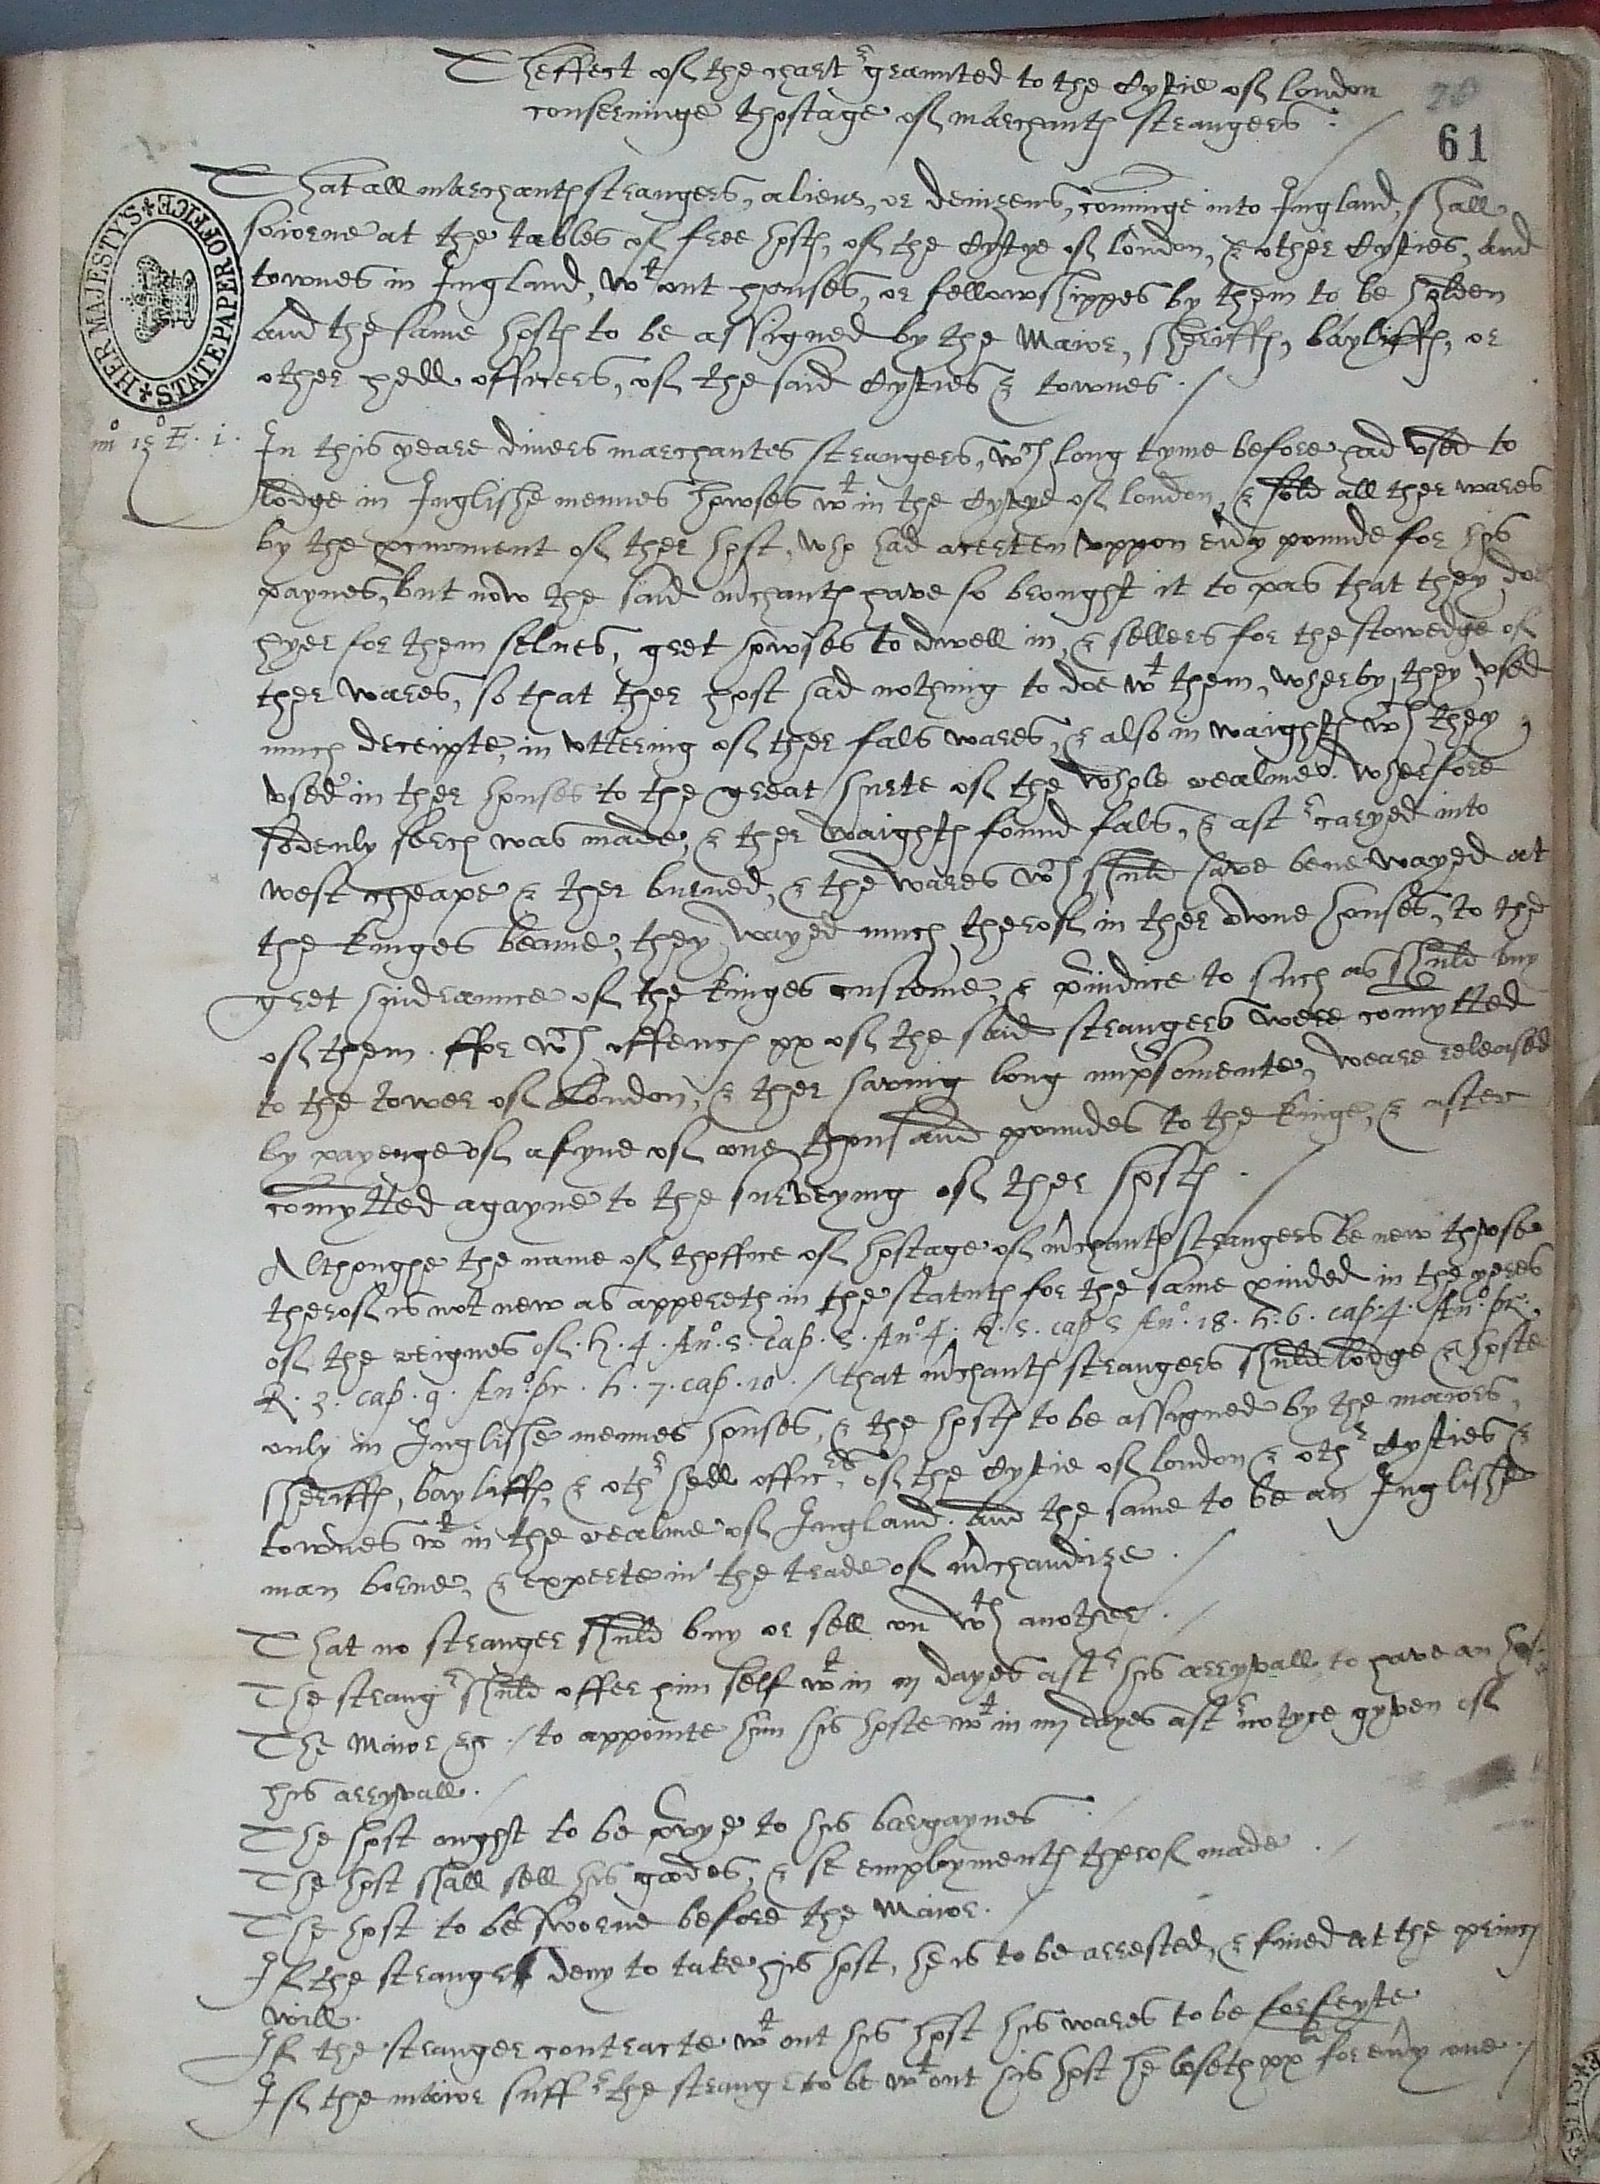 Theffect of the chartr graunted to the Cytie of London
conserninge thostage of marchants strangers :
20
61
That all marchants strangers, aliens, or denizens, cominge into Ingland, shall
soiorne at the tables of free hosts, of the Cytye of London, & other Cyties, and
townes in Ingland, wt out houses, or fellowshippes by them to be holden
and the same hosts to be assigned by the Maior, sheriffs, bayliffs, or
other hedd officers, of the said Cyties & townes ./
HER MAJESTY'S STATE PAPER OFFICE
E. i. In this yeare divers marchantes strangers, wch long tyme before had used to
lodge in Inglishe mennes howses wt in the Cytye of London, & sold all ther wares
by the procurment of ther host, who had a certen uppon evry pounde for his
paynes, but now the said mchants have so brought it to pas that they doe
hyer for them selves, gret howses to dwell in, & sellers for the stowedge of
ther wares, so that ther host had nothing to doe wt them, wherby they used
much deceipte, in uttering of ther fals wares, & also in waights wch they
used in ther houses to the great hurte of the whole realme. Wherfore
sodenly serch was made, & ther waights found fals, & aftr caryed into
west cheape & ther burned, & the wares wch shuld have bene wayed at
the kinges beame, they wayed much therof in ther owne houses, to the
gret hinderaunce of the kinges custome, & preiudice to such as shuld buy
of them. ffor wch offencs xx of the said strangers were comytted
to the tower of London, & ther having long imprsomente, weare released
by payenge of a fyne of one thousand poundes to the kinge, & after
comytted agayne to the surveying of ther hosts ./
Althoughe the name of thoffice of hostage of mchants strangers be new thuse
therof is not new as appereth in the statuts for the same provided in the yeres
of the reignes of .h. 4. Ano. 5. cap. 5. Ano. 4. h. 5. cap 5 Ano. 18. h. 6. cap. 4. Ano. pr.
R. 3. cap. 9. Ano. pr. h. 7. cap. 10. / that mchants strangers shuld lodge & hoste
only in Inglishe mennes houses, & the hosts to be assigned by the maiors,
sheriffs, bayliffs, & othr hedd officrs, of the Cytie of London & othr Cyties &
townes wt in the realme of Ingland. and the same to be an Inglishe
man borne, & experte in the trade of mchandize ./
That no stranger shuld buy or sell on wth another ./
The strangr shuld offer him self wt in iij dayes aftr his arryvall to have an
The Maior &c ./ to appointe him his hoste wt in iiij dayes aftr notyce gyven of
his arryvall ./
The host ought to be prvye to his bargaynes ./
The host shall sell his goodes, & se employments therof made ./
The host to be sworne before the Maior ./
If the stranger deny to take his host, he is to be arrested, & fined at the princs
will.
If the stranger contracte wt out his host his wares to be forfeyte
If the maior suffr the stranger to be wt out his host he loseth xx li for evry one ./